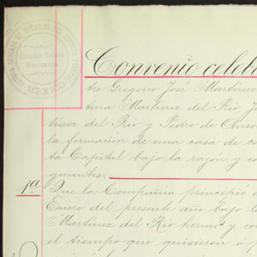 Convenio celeb
tre Gregorio José Martinez
tura Martinez del Rio, J
tinez del Rio y Pedro de Anso
la formacion de una casa de co
ta Capital bajo la razon y co
quientes:
1ª Que la Compañia principió
Enero del presente año bajo l
Martinez del Rio herms y co
el tiempo que quisieren ó p
MEXICO